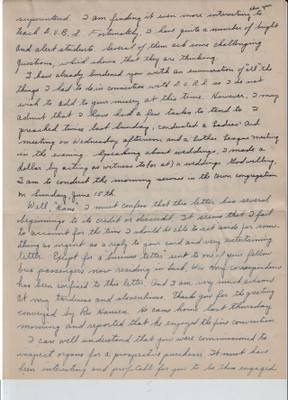 experienced. I am finding it even more interesting to
teach D.V.B.S. Fortunately, I had quite a number of bright
and alert students. Several of them ask some challenging
questions, which shows that they are thinking.
I have already burdened you with an enumeration of all the
things I had to do in connection with D.V.B.S. so I do not
wish to add to your misery at this time. However, I may
admit that I have had a few tasks to tend to. I
preached twice last Sunday, conducted a Ladies' Aid
meeting on Wednesday afternoon and a Luther League meeting
in the evening. Speaking about weddings, I made a
dollar by acting as witness to (or at) a wedding. God willing,
I am to conduct the morning service in the own congregation
on Sunday, June 15th.
Well, I must confess that this letter has several
beginnings to its credit or discredit. It seems that I fail
to account for the time I should be able to set aside for some
thing as urgent as a reply to your card and very entertaining
letter. Except for a business letter sent to one of your fellow
bus passengers now residing in my correspondence
has been confined to this letter. And I am very much ashamed
at my tardiness and slovenliness. Thank you for the greeting
conveyed by Rev. Hansen. He came home last Thursday
morning and reported that he enjoyed the fine convention.
I can well understand that you were commissioned to
inspect organs for a prospective purchaser. It must have
been interesting and profitable for you to be thus engaged.